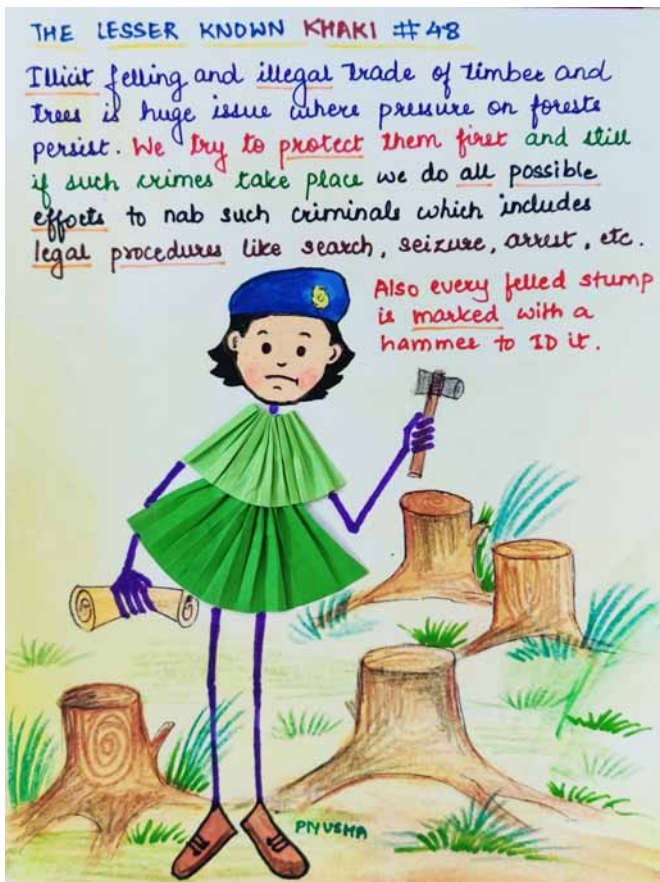 THE LESSER KNOWN KHAKI #48
Illicit felling and illegal trade of timber and
trees is huge issue where pressure on forests
persist. We try to protect them first and still
if such crimes take place we do all possible
efforts to nab such criminals which includes
legal procedures like search, seizure, arrest, etc.
Also every felled stump
is marked with a
hammer to ID it.
PIYUSHA